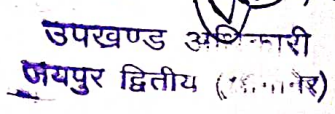 उपखण्ड अधिकारी
जयपुर द्वितीय